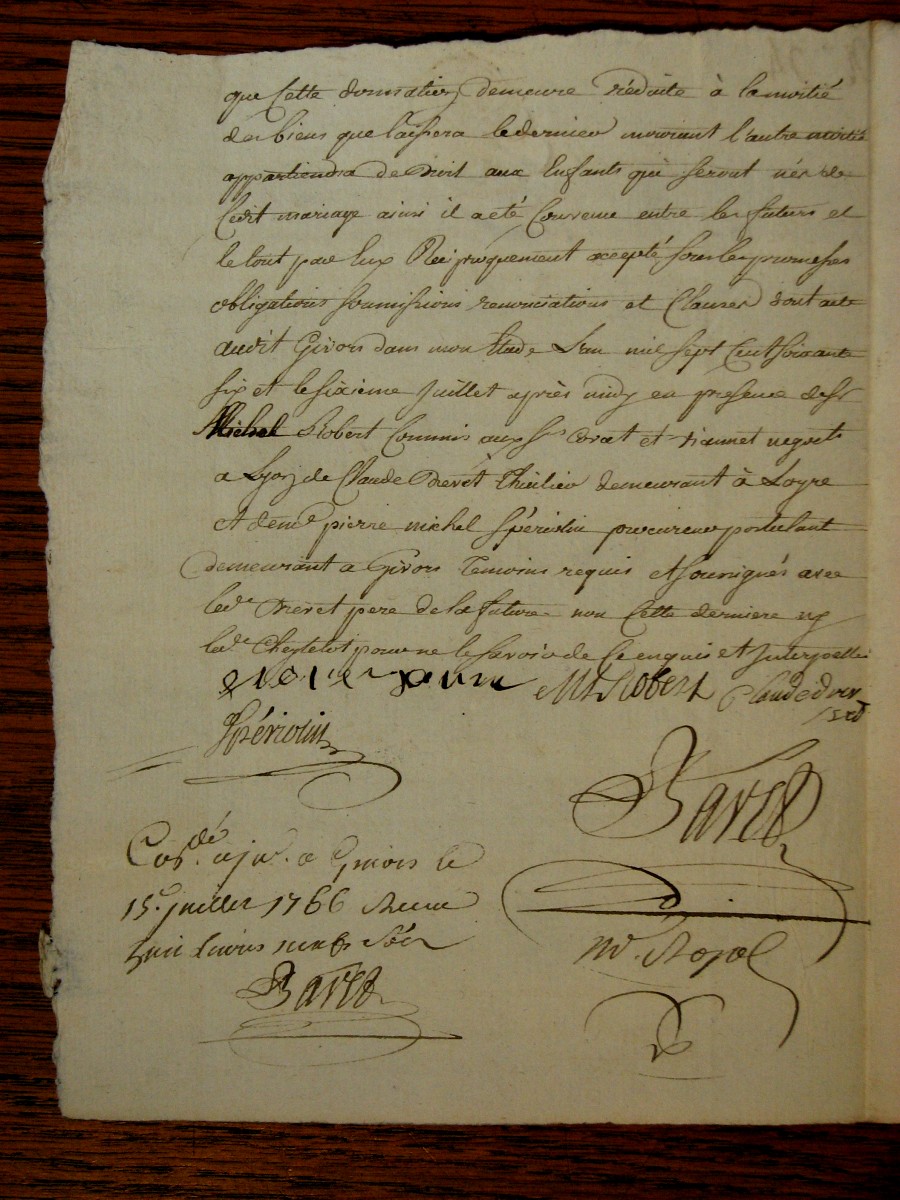 que Cette donnation demeure réduite à la moitié
des biens que laissera le dernier mourant l'autre moitié
appartiendra de droit aux Enfants qui seront nés de
Cedit mariage ainsi il a eté Convenu entre les futurs et
le tout par Eux Reciproquement accepté sous les promesses
obligations soumissions renonciations et Clauses dont acte
audit Givors dans mon Etude L'an mil sept Cent soixante
six et le sixieme Juillet après midy en presence de sr
Michel Robert Commis aux srs et negots
a Lyon de Claude Drevet demeurant à Loyre
et de me pierre michel Spériolin procureur postulant
demeurant a Givors Temoins requis et sousignés avec
led. Drevet pere de la future non Cette derniere ny
led. pour ne le savoir de Ce enquis et Interpellé
Ml Robert Claude drev
Spériolin
Bavet
Cosllé a ju. a Givors le
15e juillet 1766 Receu
huit livres
Bavet
nre. Royal